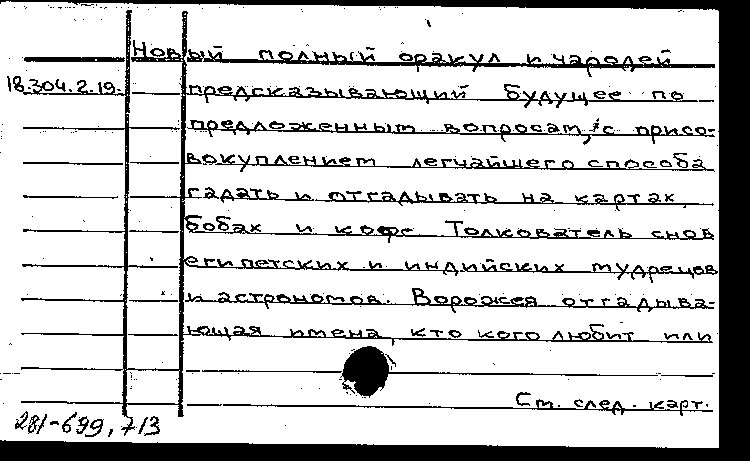 Новый полный оракул и чародей
18.304.2.19. предсказывающий будущее по
предложенным вопросам, с присо-
вокуплением легчайшего способа
гадать и отгадывать на картах,
бобах и кофе Толкователь снов
египетских и индийских мудрецов
и астрономов. Ворожея отгадыва-
ющая имена, кто кого любит или
См. след. карт.
281-699, 713